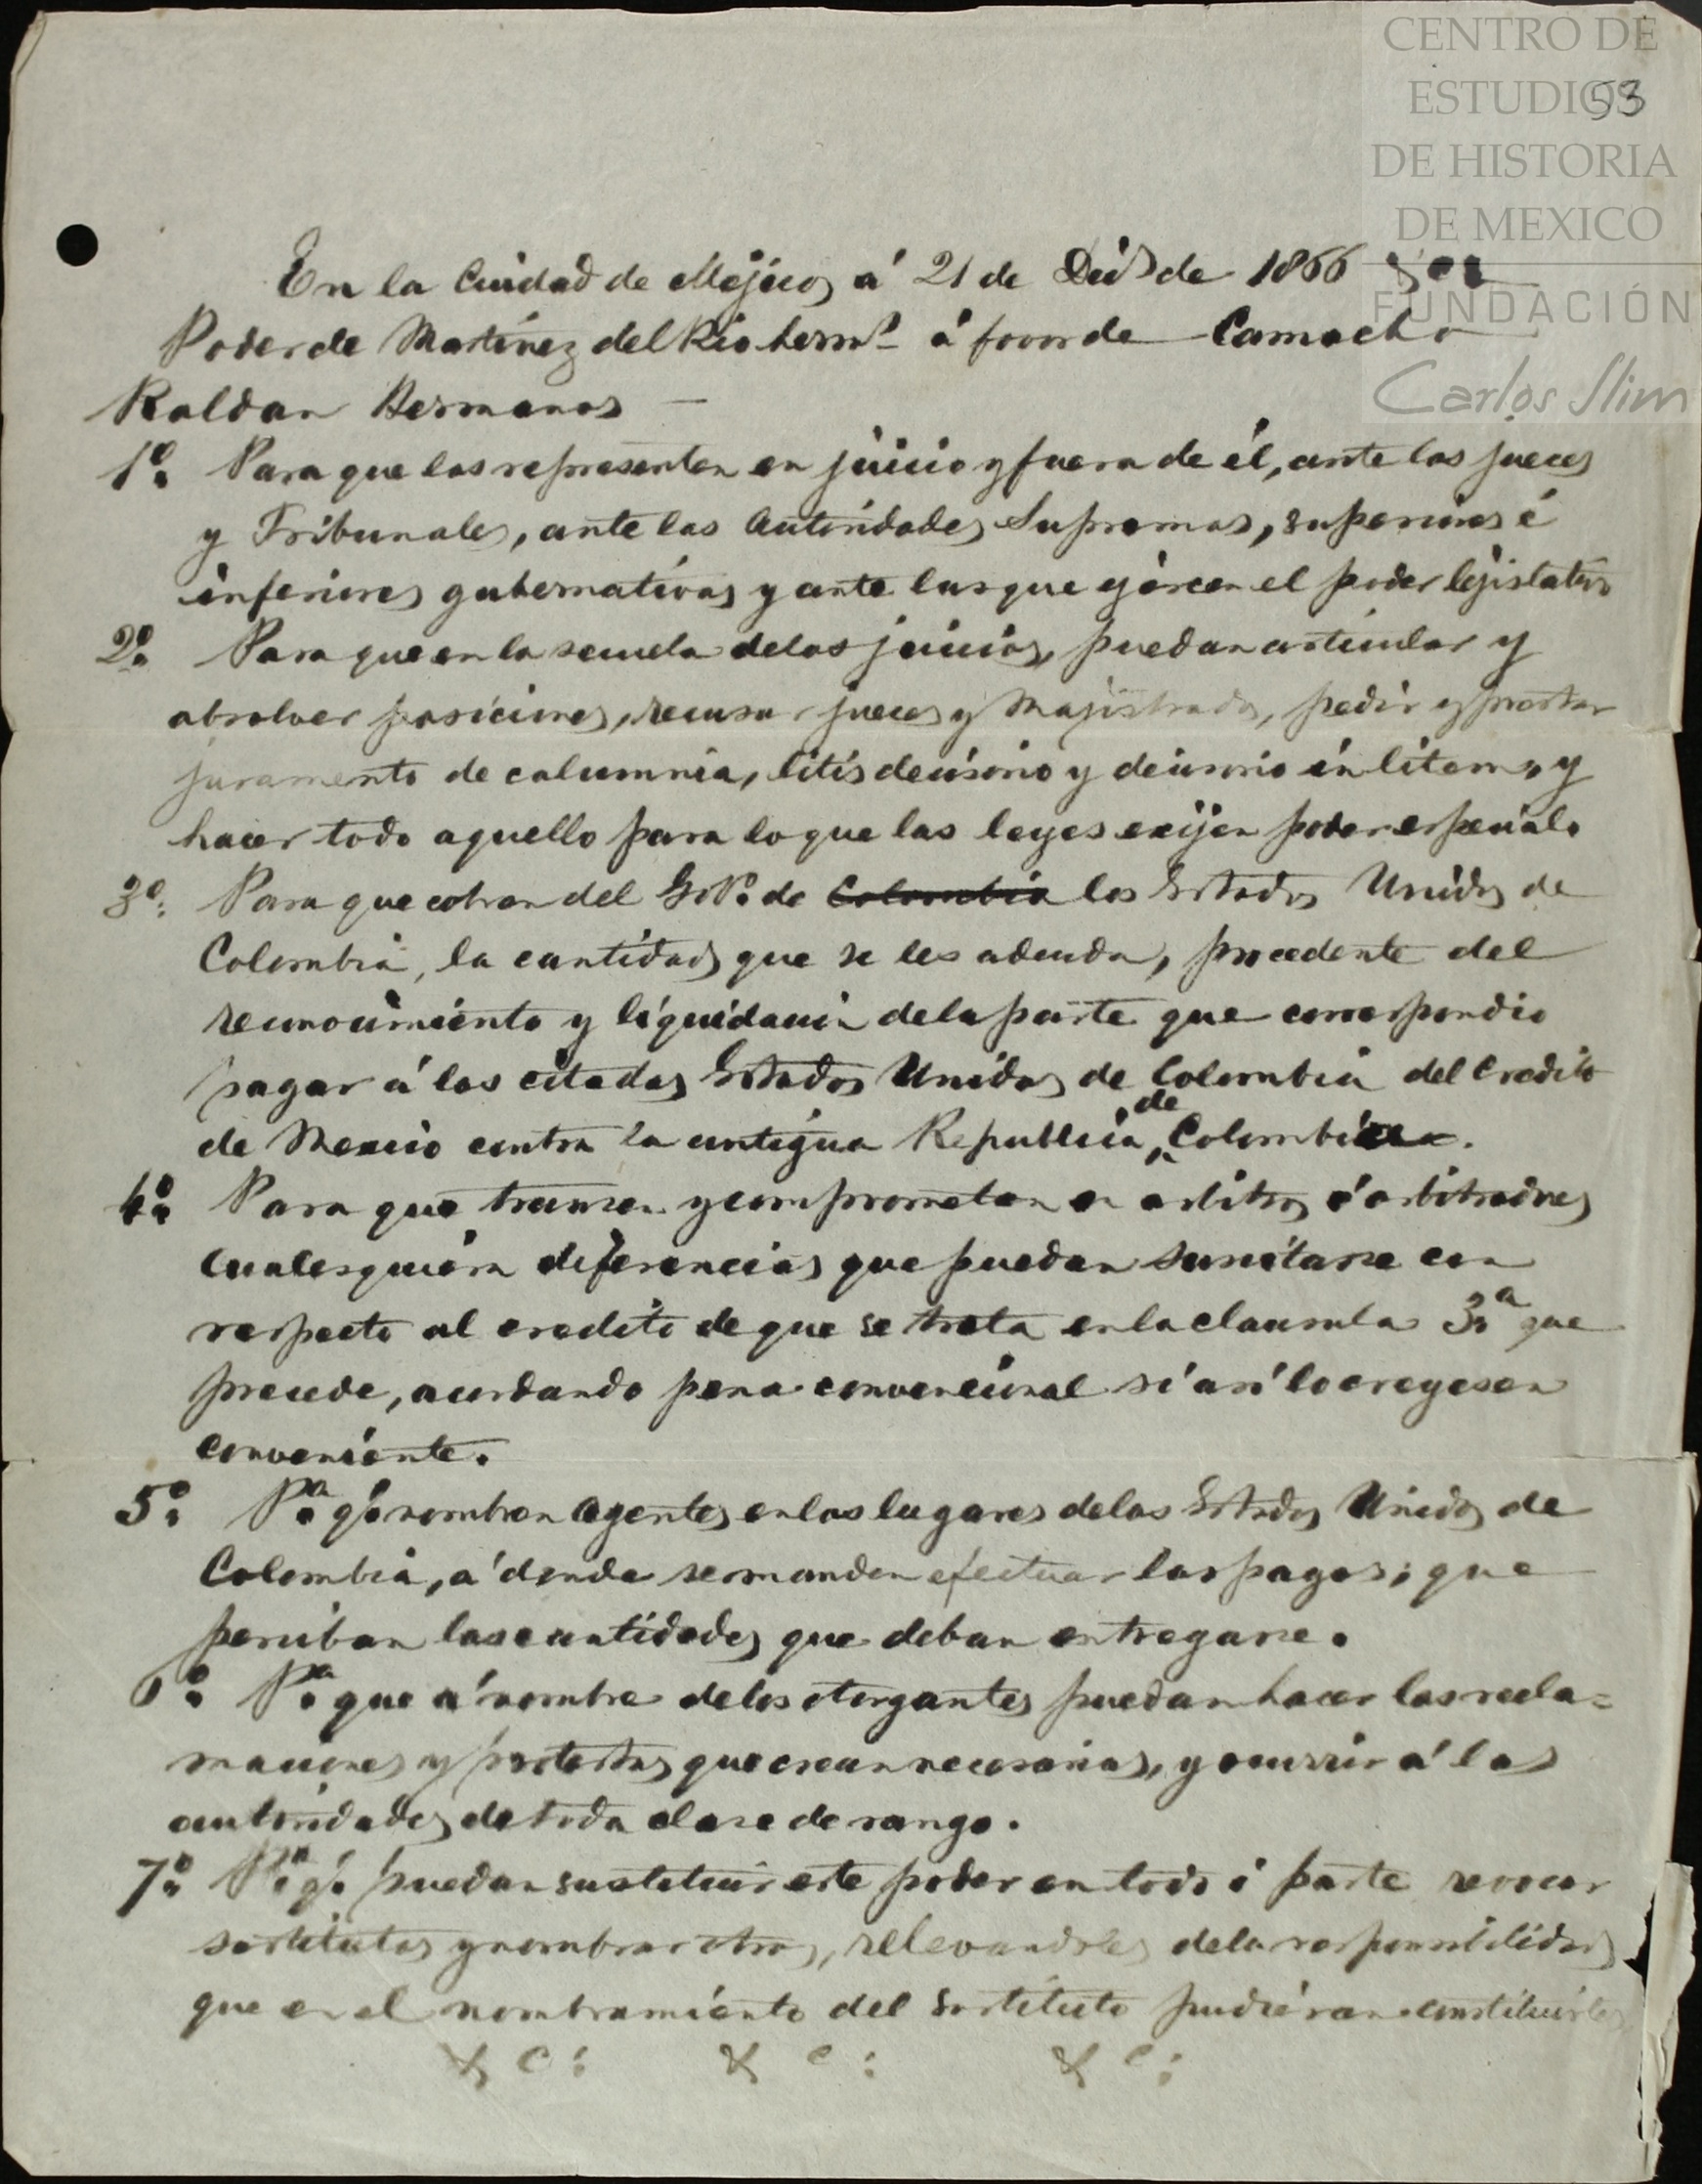 CENTRO DE
ESTUDIOS
53
DE HISTORIA
DE MEXICO
FUNDACIÓN
Carlos Slim
En la Ciudad de Méjico, á 21 de Dic.ᵉ de 1866
Poder de Martinez del Rio herm.ˢ á favor de Camacho
Roldan Hermanos —
1º. Para que los representen en juicio y fuera de él, ante los jueces
y Tribunales, ante las Autoridades Supremas, superiores é
inferiores gubernativas y ante las que ejercen el poder lejislativo
2º. Para que en la secuela de los juicios, puedan articular y
absolver posiciones, recusar jueces y Majistrados, pedir y prestar
juramento de calumnia, litis decisorio y decisorio in litem, y
hacer todo aquello para lo que las leyes exijen poder especial.
3º. Para que cobren del Gob.º de Colombia los Estados Unidos de
Colombia, la cantidad que se les adeuda, procedente del
reconocimiento y liquidacion de la parte que correspondio
pagar á los citados Estados Unidos de Colombia del Credito
de Mexico contra la antigua Republica de Colombia.
4º. Para que transen y comprometan en arbitros ó arbitradores
cualesquiera diferencias que puedan suscitarse con
respecto al credito de que se trata en la clausula 3.ª que
precede, acordando pena convencional si así lo creyesen
conveniente.
5º. P.ª q.e nombren Agentes en los lugares de los Estados Unidos de
Colombia, á donde se manden efectuar los pagos; que
perciban las cantidades que deban entregarse.
6º. P.ª que á nombre de los otorgantes puedan hacer las recla=
maciones y protestas que crean necesarias, y ocurrir á las
autoridades de toda clase de rango.
7º. P.ª q.e puedan sustituir este poder en todo ó parte revocar
sostitutos y nombrar otros, relevandoles de la responsabilidad
que en el nombramiento del sostituto pudieran constituirles
&c: &c: &c: